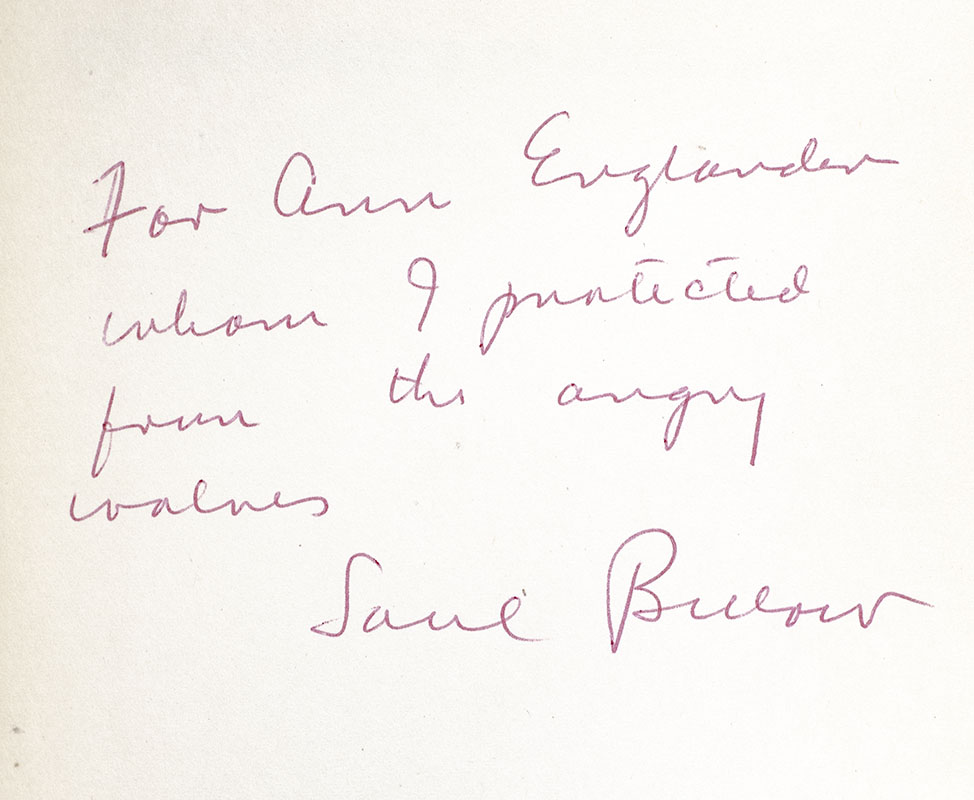 For Ann Englander
whom I protected
from the angry
wolves
Saul Bellow